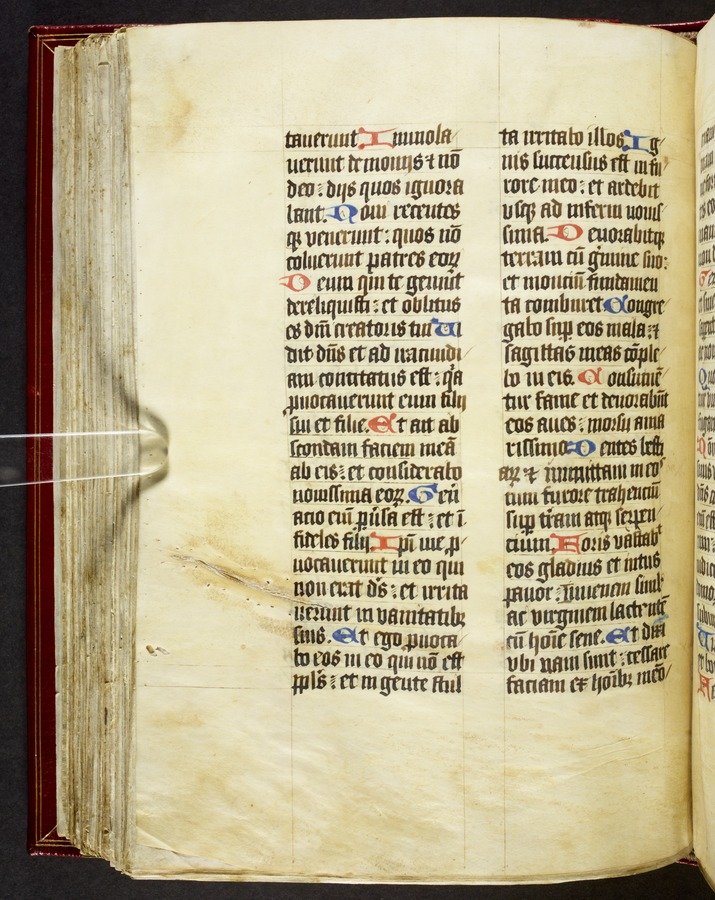 tauerunt. Immola
uerunt demoniis ⁊ nō
deo: diis quos ignora
bant. Noui recentes
qꝫ venerunt: quos nō
coluerunt patres eoꝝ
Deum qui te genuit
dereliquisti: et oblitus
es dn̄i creatoris tui Ui
dit dn̄s et ad iracundi
am concitatus est: q̄a
ꝓuocauerunt eum filii
sui et filie. Et ait ab
scondam faciem meā
ab eis: et considerabo
nouissima eoꝝ. Gen̄
acio em̄ ꝑuersa est: et ī
fideles filii. Ipi me ꝓ
uocauerunt in eo qui
non erat ds̄: et irrita
uerunt in vanitatibꝫ
suis. Et ego ꝓuoca
bo eos in eo qui nō est
ppl̄s: et in gente stul
ta irritabo illos. Ig
nis succensus est in fu
rore meo: et ardebit
vsqꝫ ad inferni nouis
sima. Deuorabitqꝫ
terram cū ḡmine suo:
et monciū fundamen
ta comburet Congre
gabo sup̄ eos mala: ⁊
sagittas meas cōple
bo in eis. Consumēt
tur fame et deuorabūt
eos aues: morsu ama
rissimo Dentes besti
aꝝ ⁊ immittam in eos
cum furore trahenciū
sup̄ t̄ram atqꝫ serpen
cium. Foris vastabt
eos gladius et intus
pauor: Juuenem simul
ac virginem lactentē
cū hoīe sene. Et dixi
vbi nam sunt: cessare
faciam ex hoībꝫ meō